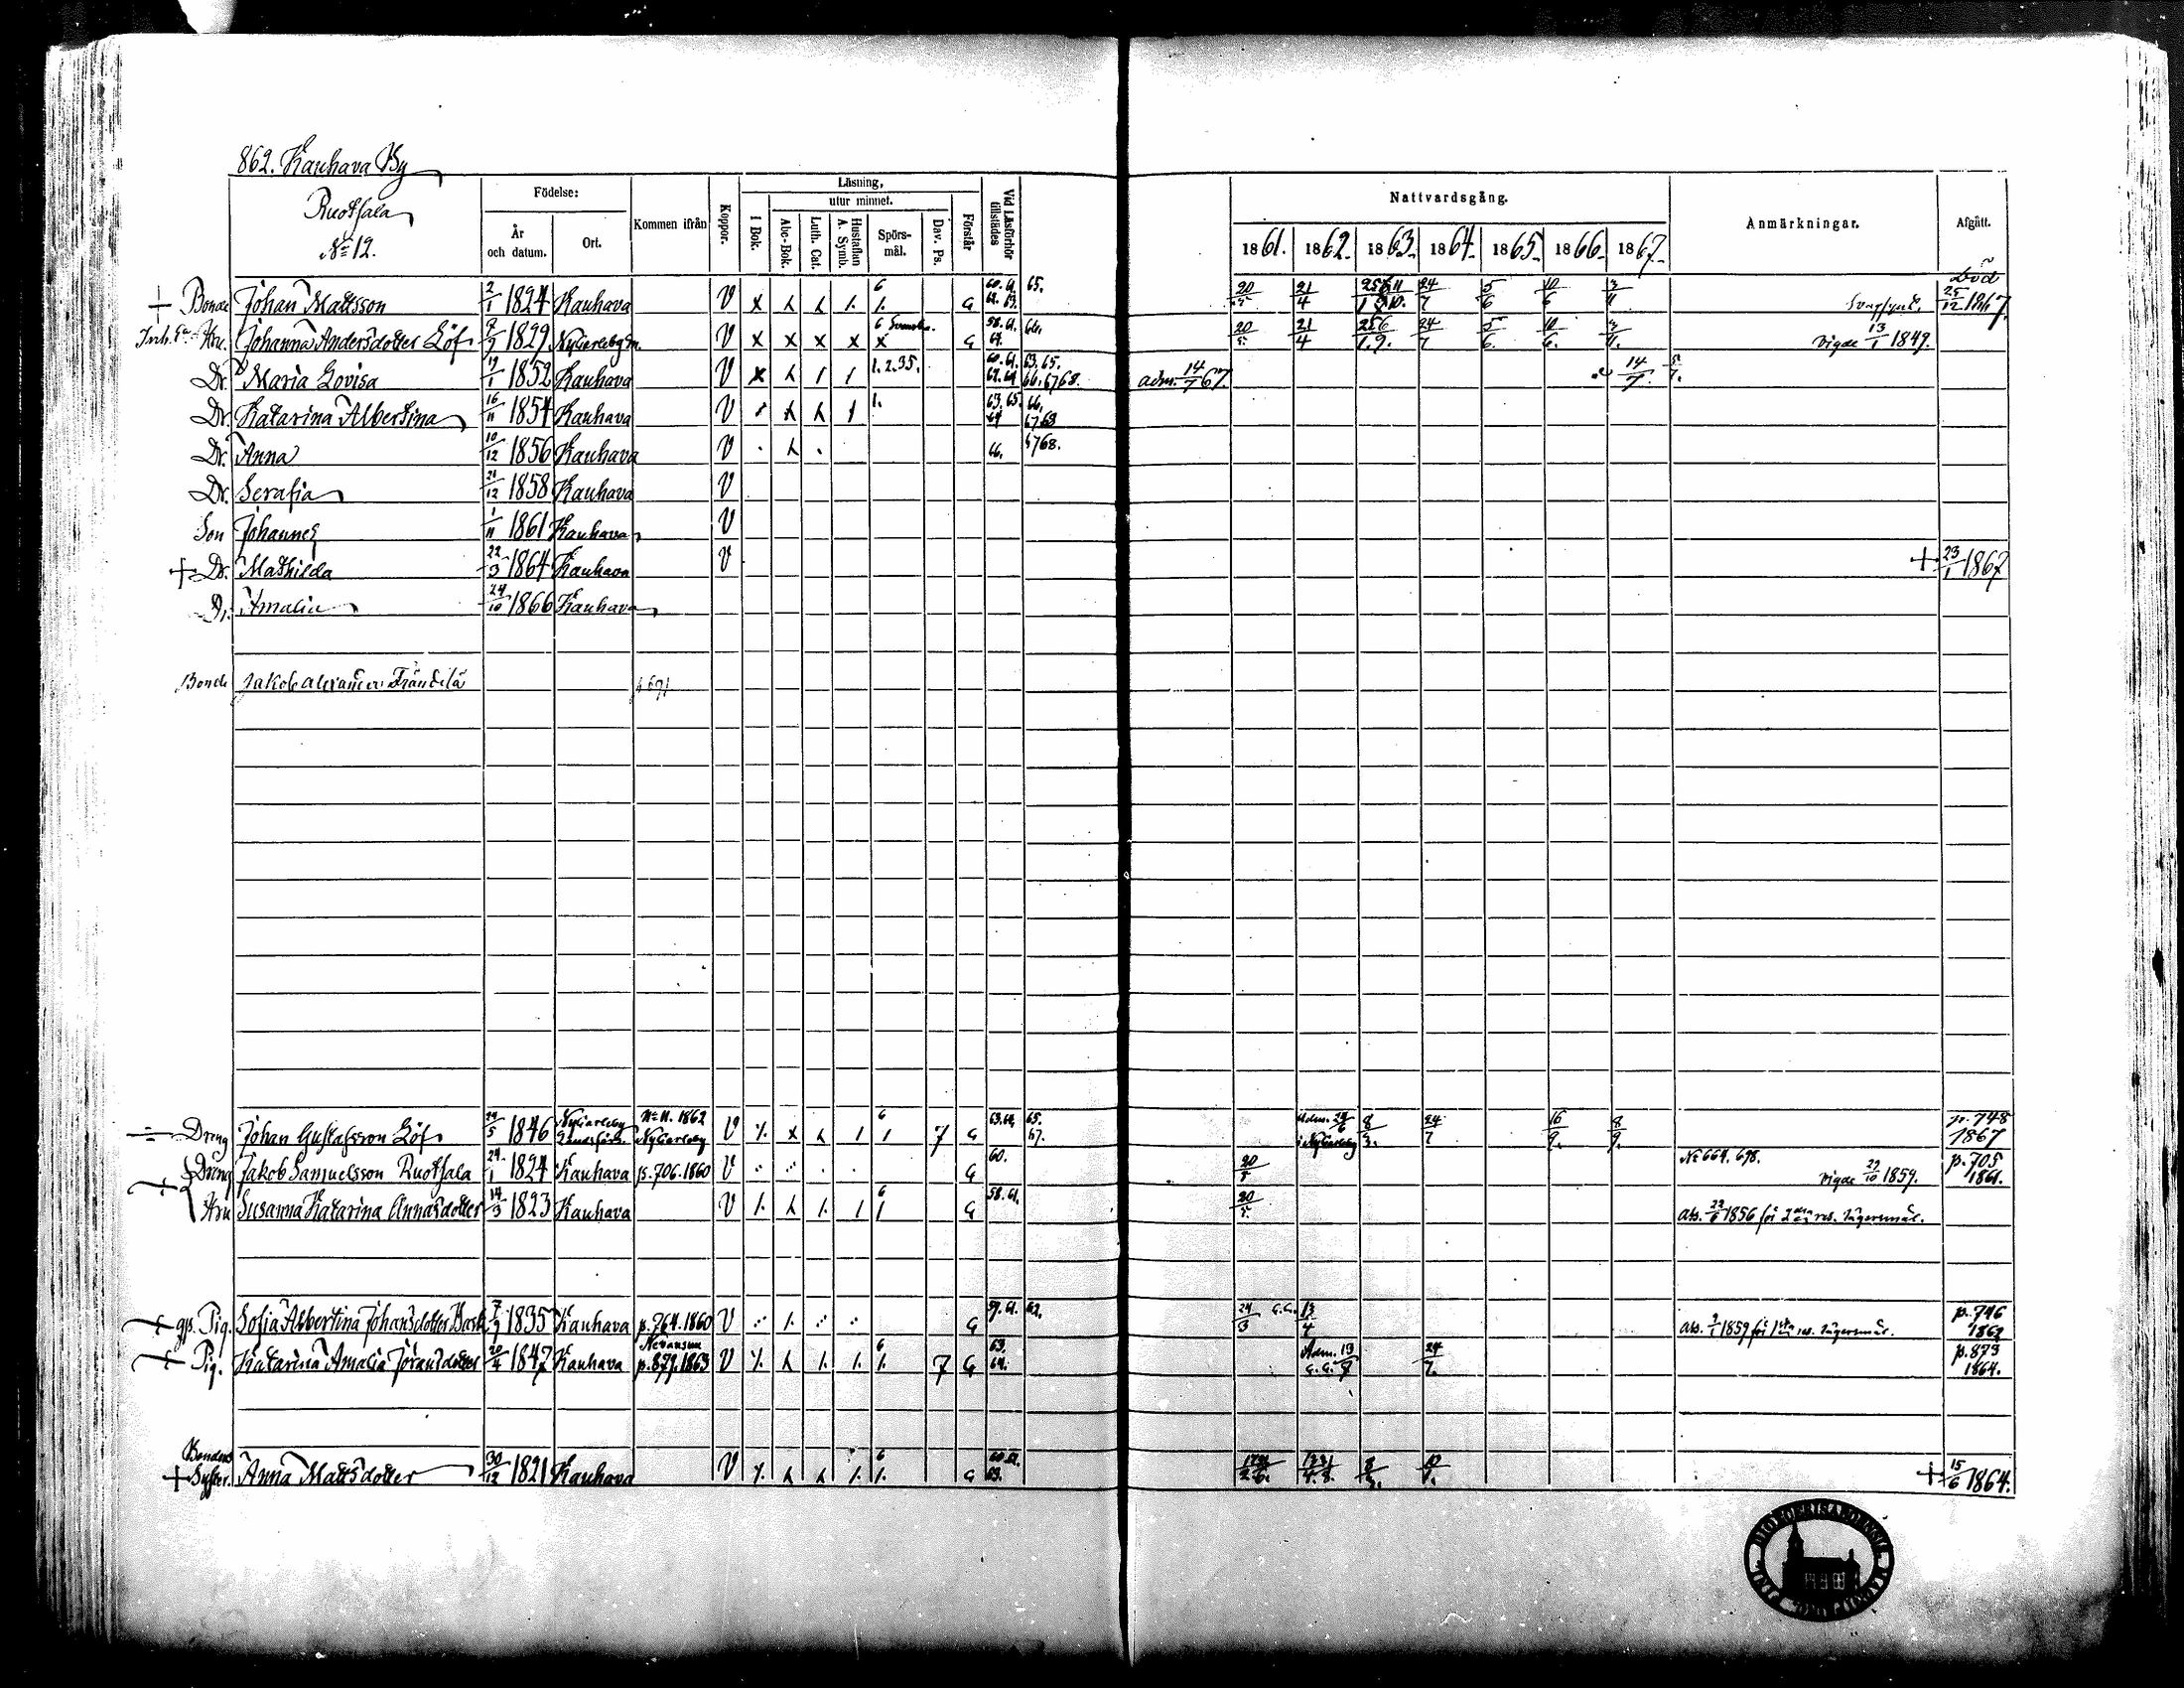 862. Kauhava By
Ruotsala
No 12.
Födelse:
År och datum.
Ort.
Kommen ifrån
Koppor.
Läsning,
I Bok.
utur minnet.
Abc-Bok.
Luth. Cat.
Hustaflan A. Symb.
Spörsmål.
Dav. Ps.
Förstår
Vid Läsförhör tillstädes
Nattvardsgång.
1861. 1862. 1863. 1864. 1865. 1866. 1867.
Anmärkningar.
Afgått.
+ Bonde Johan Mattsson 2/1 1824 Kauhava V x 6 G 60. 61. 62. 63. 65. 20/5 21/4 24/7 5/6 10/6 3/11 Svagsynt. Död 25/12 1867
Hu. Johanna Andersdotter Löf 7/7 1829 NyCarleby V x x x x x 6 Svenska. G 58. 61. 64. 66. 20/5. 21/4 256/1.9. 24/7 5/6. 10/6. 3/11. vigde 13/1 1849.
Dr. Maria Lovisa 19/1 1852 Kauhava V x 1.2.35. 60. 61. 63. 65. 62. 64 66. 6768. adm. 14/7 67 14/7. 5/7.
Dr. Katarina Albertina 16/11 1854 Kauhava V 1. 63. 65. 66. 64 6768
Dr. Anna 10/12 1856 Kauhava V 66. 6768.
Dr. Serafia 21/12 1858 Kauhava V
Son Johannes 1/11 1861 Kauhava V
+ Dr. Mathilda 22/3 1864 Kauhava V + 23/1 1867
Dr. Amalia 24/10 1866 Kauhava
Bonde Jakob Alexander Frändilä p 691
Dräng Johan Gustafsson Löf 29/5 1846 NyCarleby No 11. 1862 NyCarleby V 6 7 G 63. 64. 65. 67. Adm. 24/6 i NyCarleby 8/3. 24/7 16/9. 8/9. p. 748 1867
Dräng Jakob Samuelsson Ruotsala 24/1 1824 Kauhava p. 706. 1860 V G 60. 20/5 No 664. 698. vigde 29/10 1859. p. 705 1861.
Hu Susanna Katarina Annasdotter 14/3 1823 Kauhava V 6 G 58. 61. 20/5. Abs. 22/6 1856 för 2dra res. lägersmål.
+ gp. Pig. Sofia Albertina Johansdotter Bask 7/7 1835 Kauhava p. 764. 1860 V G 59. 61. 62. 24/3 G.G. 13/4 Abs. 2/1 1859 för 1sta res. lägersmål. p. 746 1862
+ Pig. Katarina Amalia Jöransdotter 20/4 1847 Kauhava p. 879. 1863 V 6 7 G 63. 64. Adm. 13/7 G.G. 24/7. p. 873 1864.
Bondens
+ Syster. Anna Mattsdotter 30/12 1821 Kauhava V 6 G 60. 62. 63. + 15/6 1864.